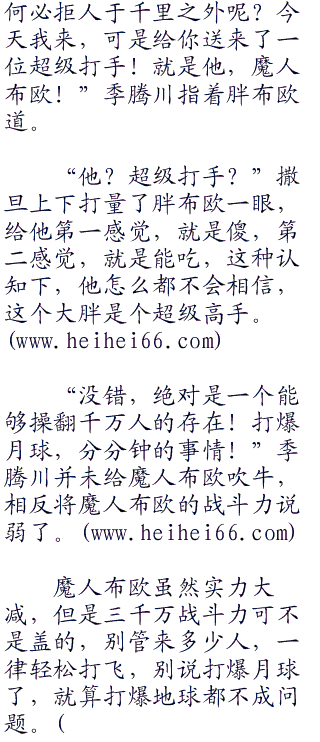 何必拒人于千里之外呢？今
天我来，可是给你送来了一
位超级打手！就是他，魔人
布欧！”季腾川指着胖布欧
道。
“他？超级打手？”撒
旦上下打量了胖布欧一眼，
给他第一感觉，就是傻，第
二感觉，就是能吃，这种认
知下，他怎么都不会相信，
这个大胖是个超级高手。
(www.heihei66.com)
“没错，绝对是一个能
够操翻千万人的存在！打爆
月球，分分钟的事情！”季
腾川并未给魔人布欧吹牛，
相反将魔人布欧的战斗力说
弱了。(www.heihei66.com)
魔人布欧虽然实力大
减，但是三千万战斗力可不
是盖的，别管来多少人，一
律轻松打飞，别说打爆月球
了，就算打爆地球都不成问
题。(